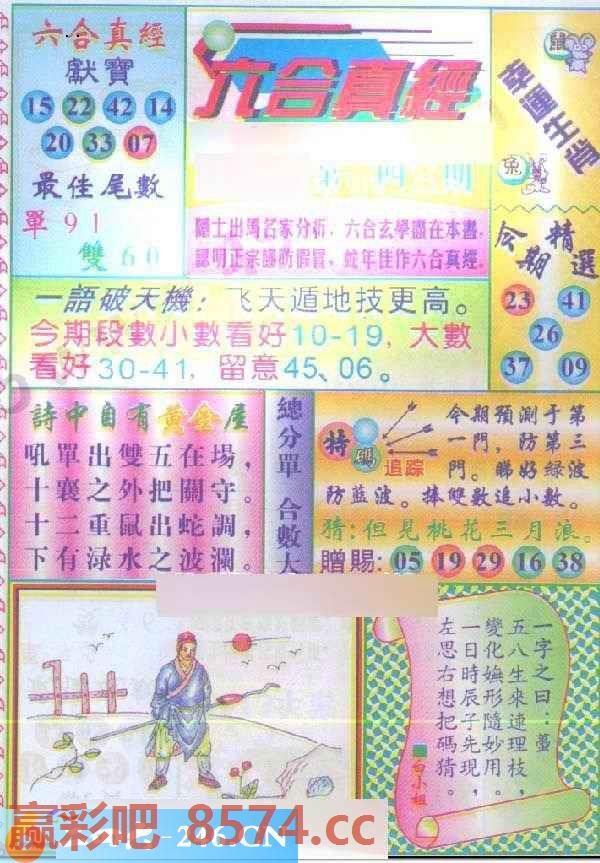 六合真經
獻寶
15 22 42 14
20 33 07
最佳尾數
單91
雙60
六合真經
隱士出馬名家分析，六合玄學盡在本書。
認明正宗謹防假冒，蛇年佳作六合真經。
鼠
幸運生肖
兔
今期精選
23 41
26
37 09
一語破天機：飞天遁地技更高。
今期段數小數看好10-19，大數
看好30-41，留意45、06。
詩中自有黃金屋
吼單出雙五在場，
十裏之外把關守。
十二重鼠出蛇調，
下有淥水之波瀾。
總分單 合數大
特碼
追踪
今期預測于第
一門，防第三
門。睇好綠波
防蓝波。捧雙數追小數。
猜：但見桃花三月浪。
贈賜：05 19 29 16 38
一字之曰：
五八生來連理枝，
變化嫵形隨妙用。
一日時辰子先現，
左思右想把碼猜。
白小姐
赢彩吧 8574.cc